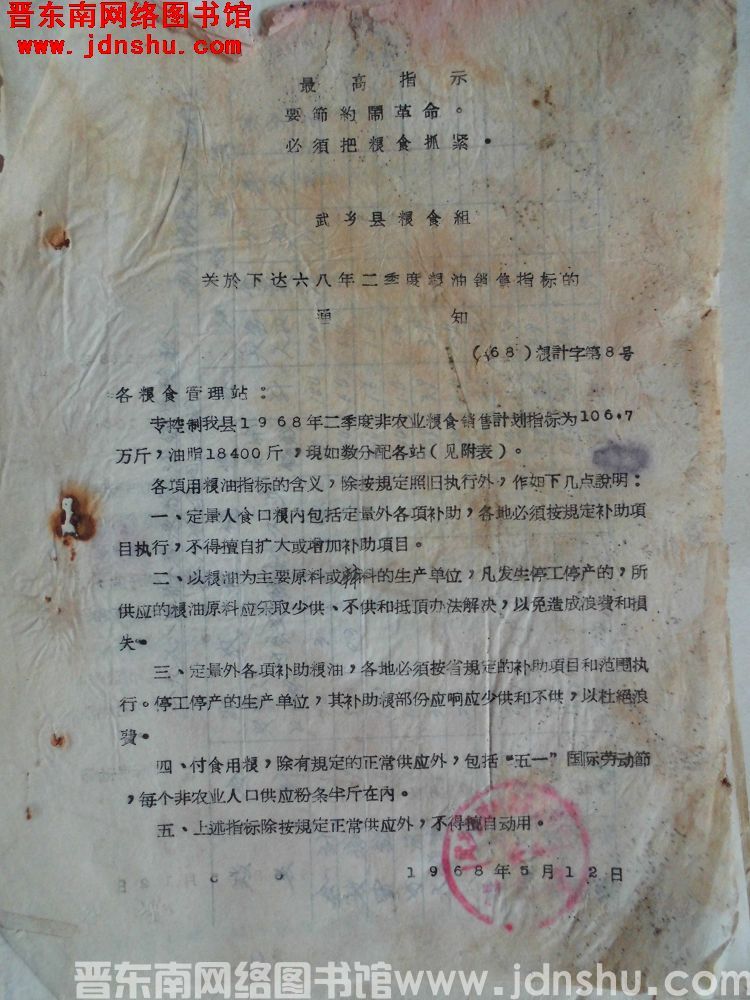 晋东南网络图书馆
www.jdnshu.com
最高指示
要節約鬧革命。
必須把粮食抓紧。
武乡县粮食組
关於下达六八年二季度粮油銷售指标的
通知
(68)粮計字第8号
各粮食管理站：
专控制我县1968年二季度非农业粮食銷售計划指标为106.7
万斤，油脂18400斤，現如数分配各站(见附表)。
各項用粮油指标的含义，除按規定照旧执行外，作如下几点說明：
一、定量人食口粮內包括定量外各項补助，各地必須按規定补助項
目执行，不得擅自扩大或增加补助項目。
二、以粮油为主要原料或輔料的生产单位，凡发生停工停产的，所
供应的粮油原料应采取少供、不供和抵頂办法解决，以免造成浪費和損
失。
三、定量外各項补助粮油，各地必須按省規定的补助項目和范围执
行。停工停产的生产单位，其补助粮部份应响应少供和不供，以杜絕浪
費。
四、付食用粮，除有規定的正常供应外，包括“五一”国际劳动節
，每个非农业人口供应粉条半斤在內。
五、上述指标除按規定正常供应外，不得擅自动用。
1968年5月12日
晋东南网络图书馆www.jdnshu.com